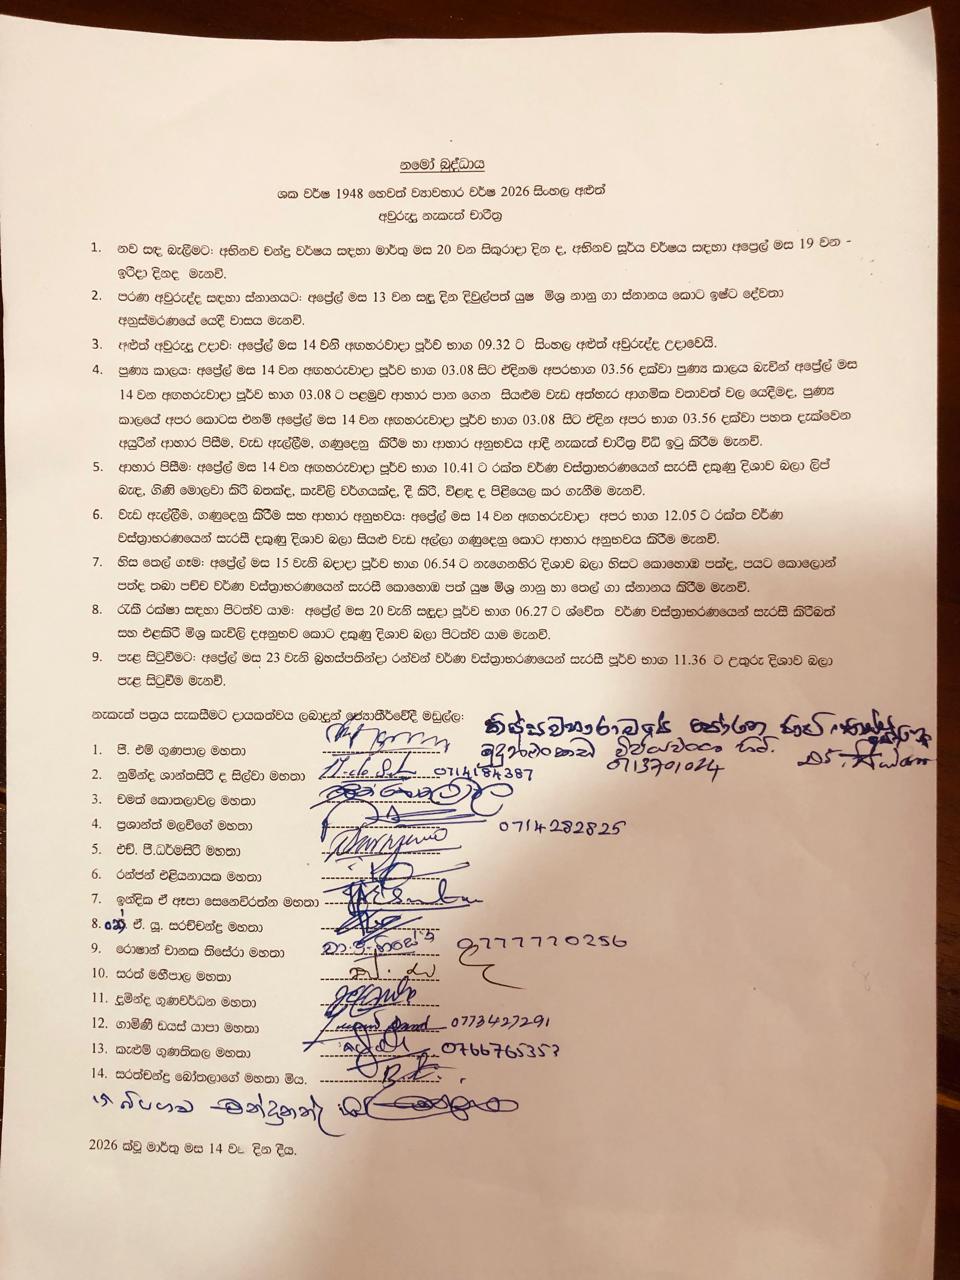 නමෝ බුද්ධාය
ශක වර්ෂ 1948 හෙවත් ව්‍යාවහාර වර්ෂ 2026 සිංහල අළුත්
අවුරුදු නැකැත් චාරිත්‍ර
1. නව සඳ බැලීමට: අභිනව චන්ද්‍ර වර්ෂය සඳහා මාර්තු මස 20 වන සිකුරාදා දින ද, අභිනව සූර්ය වර්ෂය සඳහා අප්‍රේල් මස 19 වන -
ඉරිදා දිනද මැනවි.
2. පරණ අවුරුද්ද සඳහා ස්නානයට: අප්‍රේල් මස 13 වන සඳු දින දිවුල්පත් යුෂ මිශ්‍ර නානු ගා ස්නානය කොට ඉෂ්ට දේවතා
අනුස්මරණයේ යෙදී වාසය මැනවි.
3. අළුත් අවුරුදු උදාව: අප්‍රේල් මස 14 වනි අඟහරවාදා පූර්ව භාග 09.32 ට සිංහල අළුත් අවුරුද්ද උදාවෙයි.
4. පුණ්‍ය කාලය: අප්‍රේල් මස 14 වන අඟහරුවාදා පූර්ව භාග 03.08 සිට එදිනම අපරභාග 03.56 දක්වා පුණ්‍ය කාලය බැවින් අප්‍රේල් මස
14 වන අඟහරුවාදා පූර්ව භාග 03.08 ට පළමුව ආහාර පාන ගෙන සියළුම වැඩ අත්හැර ආගමික වතාවත් වල යෙදීමද, පුණ්‍ය
කාලයේ අපර කොටස එනම් අප්‍රේල් මස 14 වන අඟහරුවාදා පූර්ව භාග 03.08 සිට එදින අපර භාග 03.56 දක්වා පහත දැක්වෙන
අයුරින් ආහාර පිසීම, වැඩ ඇල්ලීම, ගණුදෙනු කිරීම හා ආහාර අනුභවය ආදී නැකැත් චාරිත්‍ර විධි ඉටු කිරීම මැනවි.
5. ආහාර පිසීම: අප්‍රේල් මස 14 වන අඟහරුවාදා පූර්ව භාග 10.41 ට රක්ත වර්ණ වස්ත්‍රාභරණයෙන් සැරසී දකුණු දිශාව බලා ලිප්
බැඳ, ගිනි මොලවා කිරි බතක්ද, කැවිලි වර්ගයක්ද, දී කිරි, විළඳ ද පිළියෙල කර ගැනීම මැනවි.
6. වැඩ ඇල්ලීම, ගණුදෙනු කිරීම සහ ආහාර අනුභවය: අප්‍රේල් මස 14 වන අඟහරුවාදා අපර භාග 12.05 ට රක්ත වර්ණ
වස්ත්‍රාභරණයෙන් සැරසී දකුණු දිශාව බලා සියළු වැඩ අල්ලා ගණුදෙනු කොට ආහාර අනුභවය කිරීම මැනවි.
7. හිස තෙල් ගෑම: අප්‍රේල් මස 15 වැනි බදාදා පූර්ව භාග 06.54 ට නැගෙනහිර දිශාව බලා හිසට කොහොඹ පත්ද, පයට කොලොන්
පත්ද තබා පච්ච වර්ණ වස්ත්‍රාභරණයෙන් සැරසී කොහොඹ පත් යුෂ මිශ්‍ර නානු හා තෙල් ගා ස්නානය කිරීම මැනවි.
8. රැකී රක්ෂා සඳහා පිටත්ව යාම: අප්‍රේල් මස 20 වැනි සඳුදා පූර්ව භාග 06.27 ට ශ්වේත වර්ණ වස්ත්‍රාභරණයෙන් සැරසී කිරිබත්
සහ එළකිරි මිශ්‍ර කැවිලි දඅනුභව කොට දකුණු දිශාව බලා පිටත්ව යාම මැනවි.
9. පැළ සිටුවීමට: අප්‍රේල් මස 23 වැනි බ්‍රහස්පතින්දා රන්වන් වර්ණ වස්ත්‍රාභරණයෙන් සැරසී පූර්ව භාග 11.36 ට උතුරු දිශාව බලා
පැළ සිටුවීම මැනවි.
නැකැත් පත්‍රය සැකසීමට දායකත්වය ලබාදුන් ජ්‍යොතීර්වේදී මඩුල්ල:
1. පී. එම් ගුණපාල මහතා
0713701024
2. නුමින්ද ශාන්තසිරි ද සිල්වා මහතා 0714184387
3. චමත් කොතලාවල මහතා
4. ප්‍රශාන්ත් මලවිගේ මහතා 0714282825
5. එච්. පී.ධර්මසිරි මහතා
6. රන්ජන් එළියනායක මහතා
7. ඉන්දික ඒ ඈපා සෙනෙවිරත්න මහතා
8. ඒ. යූ. සරච්චන්ද්‍ර මහතා
9. රොෂාන් චානක තිසේරා මහතා 0777770256
10. සරත් මහීපාල මහතා
11. දුමින්ද ගුණවර්ධන මහතා
12. ගාමිණී ඩයස් යාපා මහතා 0773427291
13. කැළුම් ගුණතිකල මහතා 0766765353
14. සරත්චන්ද්‍ර බෝතලාගේ මහතා මිය.
2026 ක්වූ මාර්තු මස 14 වෑ දින දීය.